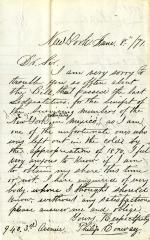 New York June 8th /70
Dr. Sir
I am very sorry to
trouble you so often about
the Bill that passed the last
Legislature, for the benefit of
the surviving members of the
New York in Mexico, as I am
one of the unfortunate ones who
was left out in the cold by
the appropriations of 1870, I feel
very anxious to know if I am
to obtain my share this time
or not. I have inquired of every
body whom I thought should
know without any satisfaction
please answer me and oblige
Yours Respectfully
940, 3rd Avenue Philip